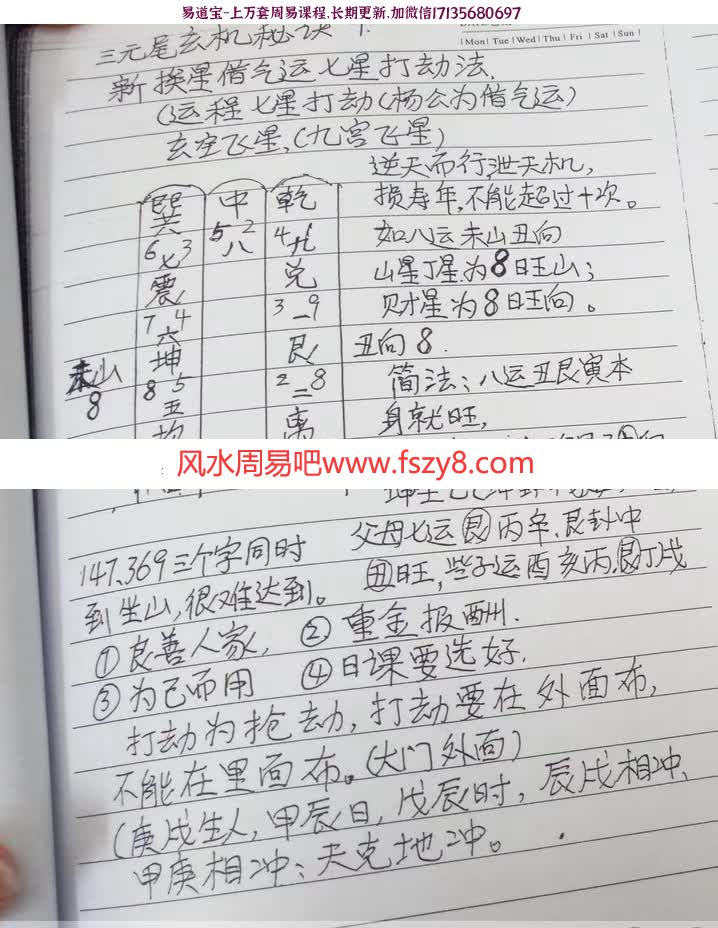 易道宝-上万套周易课程.长期更新.加微信17135680697
三元尾玄机秘诀
| Mon | Tue | Wed | Thu | Fri | Sat | Sun |
新换星借气运七星打劫法.
(运程七星打劫(杨公为借气运)
玄空飞星,(九宫飞星)
逆天而行,泄天机,
巽 中 乾 损寿年,不能超过十次。
6 3 5 2 4
七 八 九 如八运未山丑向
震 兑 山星丁星为8旺山;
7 4 3 9
六 一 财星为8旺向。
坤 艮 丑向8.
未山 8 5 2 8 简法:八运丑艮寅本
8 五 二
离 身就旺,
风水周易吧www.fszy8.com
父母七运艮丙辛.艮卦中
147.369三个字同时
丑旺,些子运酉亥丙.艮丁戌
到坐山,很难达到。
①良善人家, ②重金报酬.
③为己而用 ④日课要选好.
打劫为抢劫,打劫要在外面布,
不能在里面布。(大门外面)
(庚戌生人,甲辰日,戊辰时,辰戌相冲、
甲庚相冲:天克地冲。